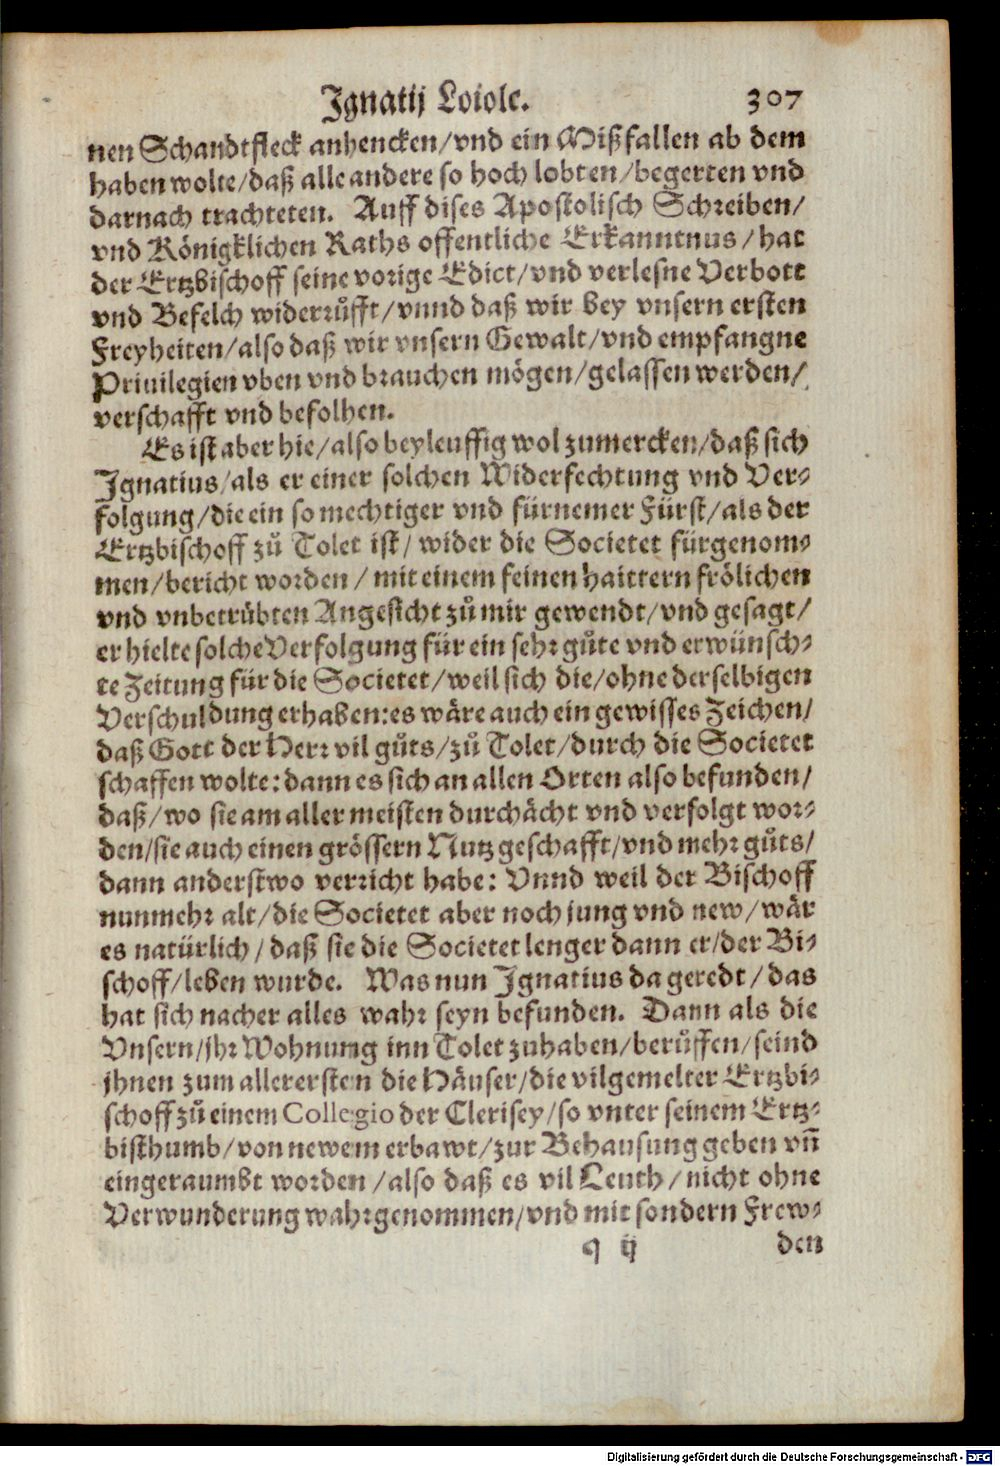 Ignatij Loiole. 307
nen Schandtfleck anhencken/vnd ein Mißfallen ab dem
haben wolte/daß alle andere so hoch lobten/begerten vnd
darnach trachteten. Auff dises Apostolisch Schreiben/
vnd Königklichen Raths offentliche Erkanntnus/hat
der Ertzbischoff seine vorige Edict/vnd verlesne Verbott
vnd Befelch widerrůfft/vnnd daß wir bey vnsern ersten
Freyheiten/also daß wir vnsern Gewalt/vnd empfangne
Priuilegien vben vnd brauchen mögen/gelassen werden/
verschafft vnd befolhen.
Es ist aber hie/also beyleuffig wol zumercken/daß sich
Ignatius/als er einer solchen Widerfechtung vnd Ver-
folgung/die ein so mechtiger vnd fürnemer Fürst/als der
Ertzbischoff zů Tolet ist/wider die Societet fürgenom-
men/bericht worden/mit einem feinen haittern frölichen
vnd vnbetrübten Angesicht zů mir gewendt/vnd gesagt/
er hielte solche Verfolgung für ein sehr gůte vnd erwünsch-
te Zeitung für die Societet/weil sich die/ohne derselbigen
Verschuldung erhaben: es wäre auch ein gewisses Zeichen/
daß Gott der Herr vil gůts/zů Tolet/durch die Societet
schaffen wolte: dann es sich an allen Orten also befunden/
daß/wo sie am aller meisten durchächt vnd verfolgt wor-
den/sie auch einen grössern Nutz geschafft/vnd mehr gůts/
dann anderstwo verricht habe: Vnnd weil der Bischoff
nunmehr alt/die Societet aber noch jung vnd new/wär
es natürlich/daß sie die Societet lenger dann er/der Bi-
schoff/leben wurde. Was nun Ignatius da geredt/das
hat sich nacher alles wahr seyn befunden. Dann als die
Vnsern/jhr Wohnung inn Tolet zuhaben/berůffen/seind
jhnen zum allerersten die Häuser/die vilgemelter Ertzbi-
schoff zů einem Collegio der Clerisey/so vnter seinem Ertz-
bisthumb/von newem erbawt/zur Behausung geben vñ
eingeraumbt worden/also daß es vil Leuth/nicht ohne
Verwunderung wahrgenommen/vnd mit sondern Frew-
q ij den
Digitalisierung gefördert durch die Deutsche Forschungsgemeinschaft - DFG